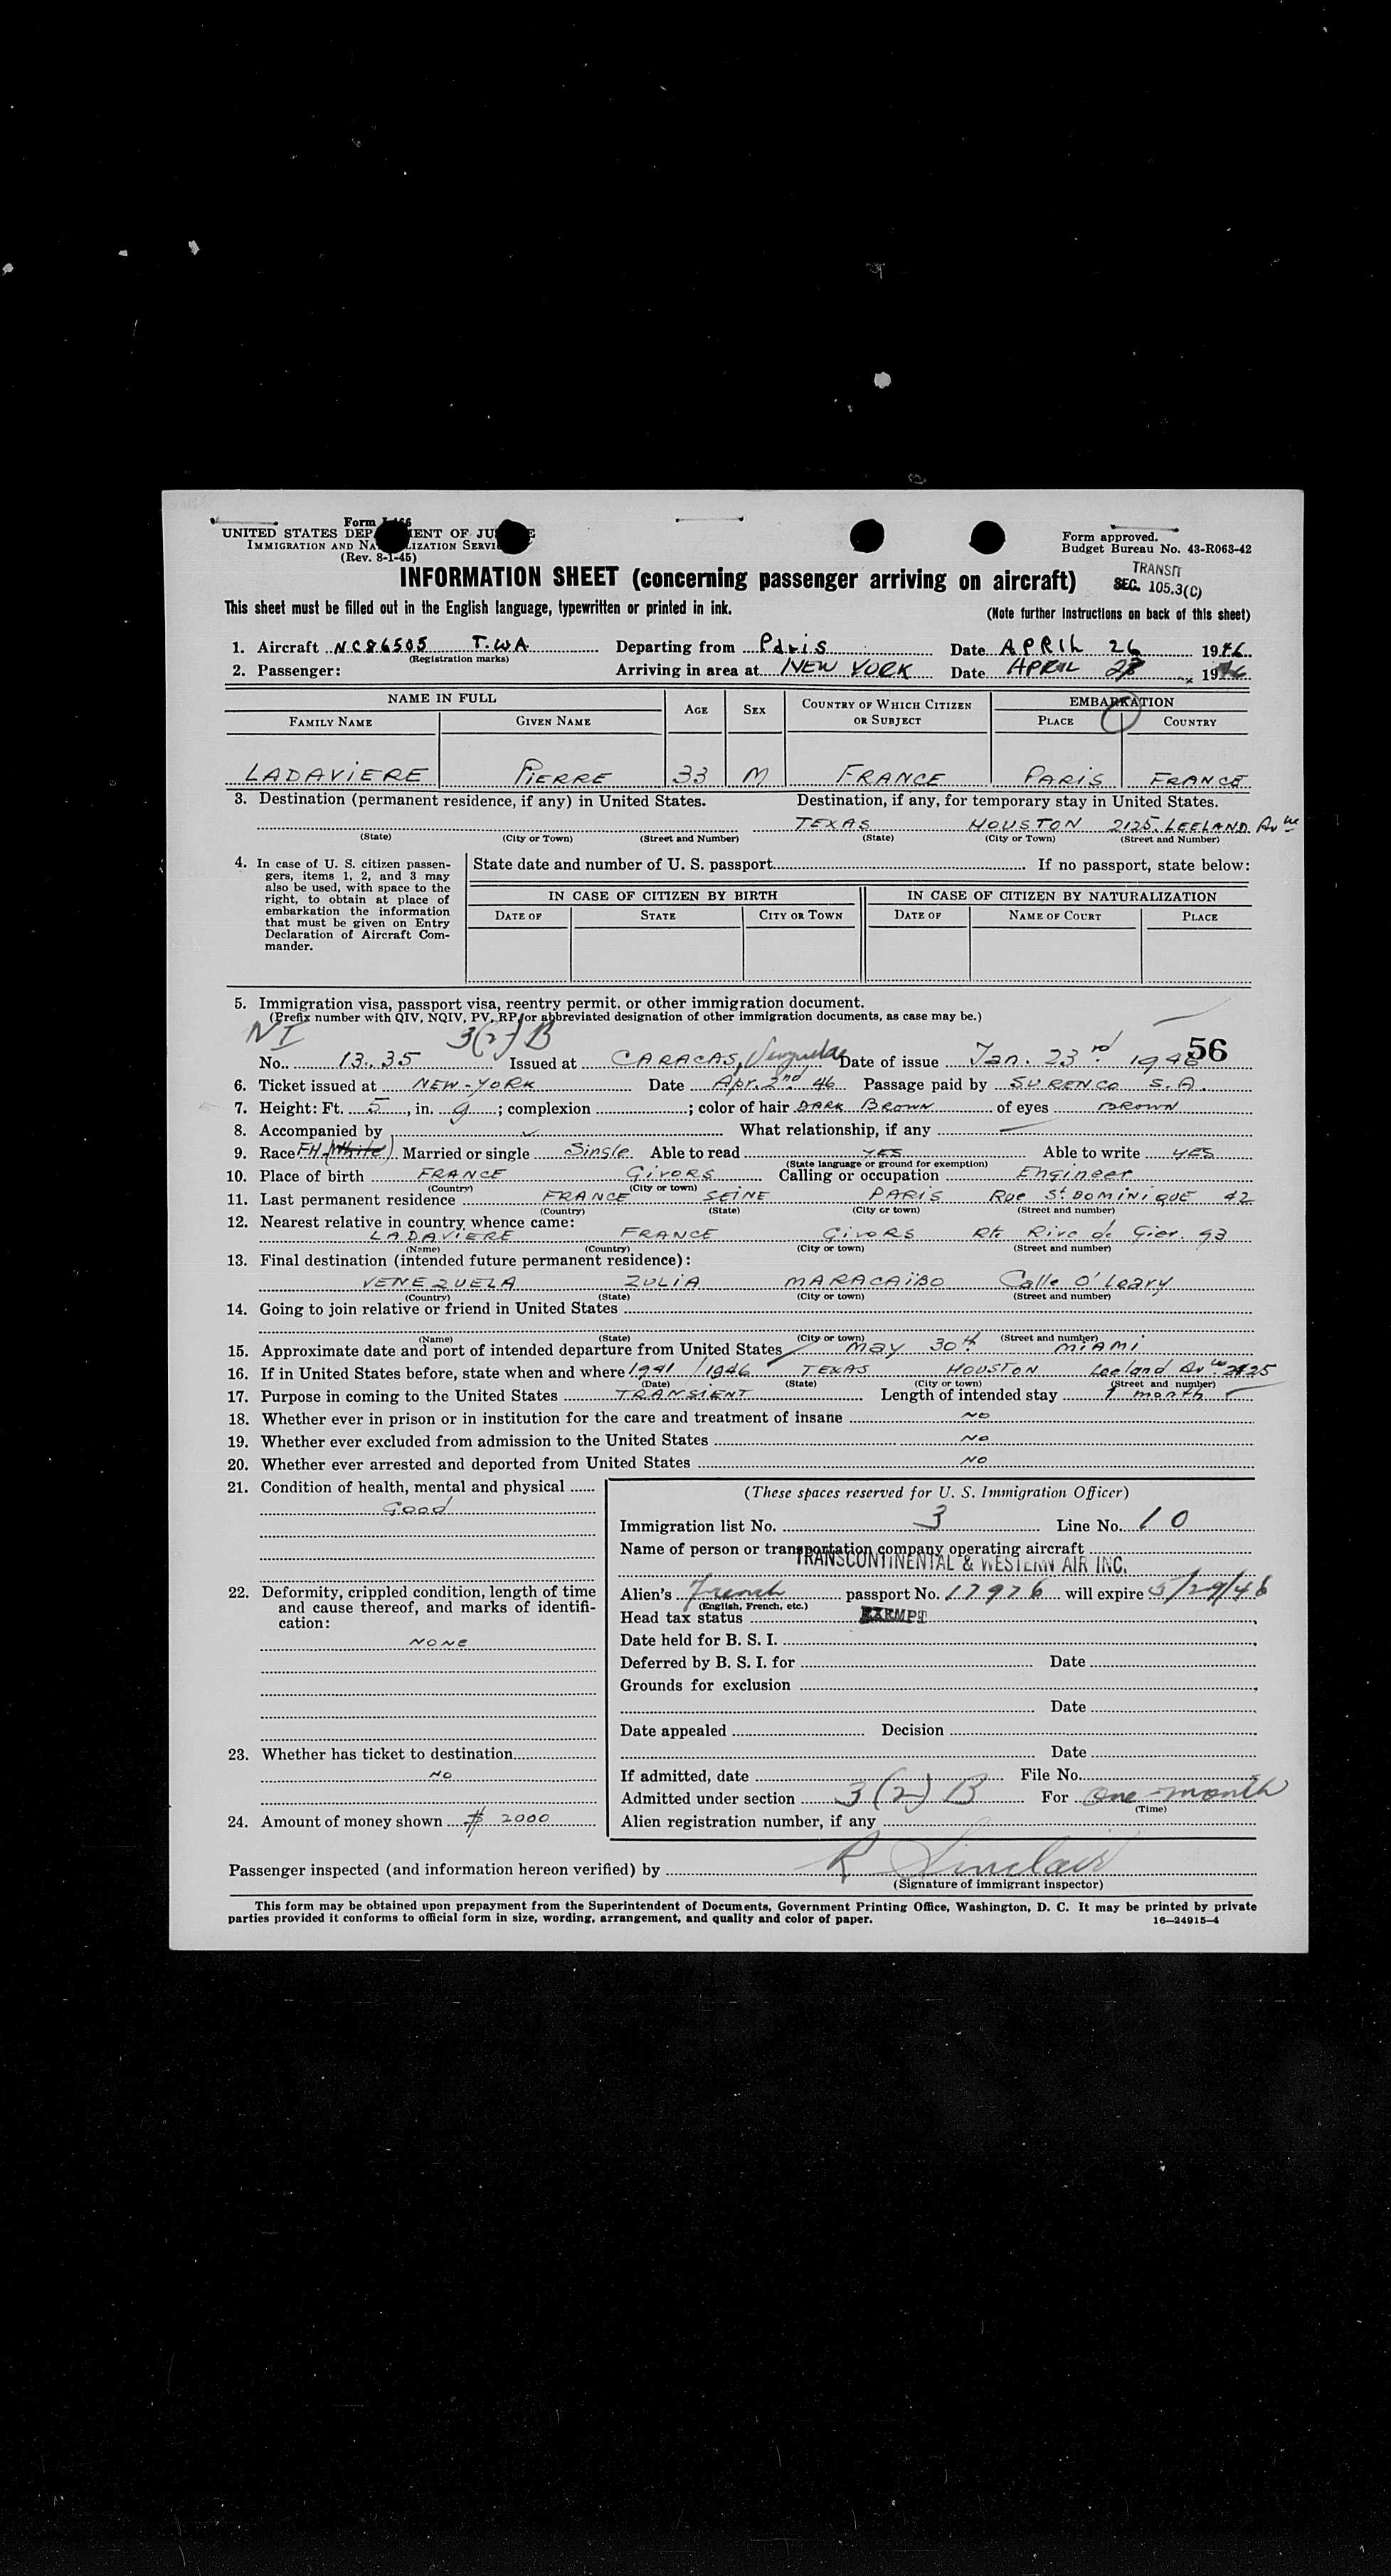 Form I-466
UNITED STATES DEPARTMENT OF JUSTICE
IMMIGRATION AND NATURALIZATION SERVICE
(Rev. 8-1-45)
Form approved.
Budget Bureau No. 43-R063-42
INFORMATION SHEET (concerning passenger arriving on aircraft)
TRANSIT
SEC. 105.3(C)
This sheet must be filled out in the English language, typewritten or printed in ink.
(Note further instructions on back of this sheet)
1. Aircraft NC86505 T.W.A Departing from Paris Date APRIL 26 1946
(Registration marks)
2. Passenger: Arriving in area at NEW YORK Date APRIL 1946
NAME IN FULL AGE SEX COUNTRY OF WHICH CITIZEN OR SUBJECT EMBARKATION
FAMILY NAME GIVEN NAME PLACE COUNTRY
LADAVIERE PIERRE 33 M FRANCE PARIS FRANCE
3. Destination (permanent residence, if any) in United States. Destination, if any, for temporary stay in United States.
TEXAS HOUSTON 2125. LEELAND Av ue
(State) (City or Town) (Street and Number) (State) (City or Town) (Street and Number)
4. In case of U. S. citizen passengers, items 1, 2, and 3 may also be used, with space to the right, to obtain at place of embarkation the information that must be given on Entry Declaration of Aircraft Commander.
State date and number of U. S. passport If no passport, state below:
IN CASE OF CITIZEN BY BIRTH IN CASE OF CITIZEN BY NATURALIZATION
DATE OF STATE CITY OR TOWN DATE OF NAME OF COURT PLACE
5. Immigration visa, passport visa, reentry permit. or other immigration document.
(Prefix number with QIV, NQIV, PV, RP, or abbreviated designation of other immigration documents, as case may be.)
NI 3(2) B
56
No. 13.35 Issued at CARACAS, Venezuela Date of issue Jan. 23rd. 1946
6. Ticket issued at NEW-YORK Date Apr. 2nd 46 Passage paid by SURENCO S.A.
7. Height: Ft. 5, in. 9; complexion ; color of hair DARK BROWN of eyes BROWN
8. Accompanied by What relationship, if any
9. Race FH (White) Married or single Single Able to read YES Able to write YES
(State language or ground for exemption)
10. Place of birth FRANCE GIVORS Calling or occupation Engineer
(Country) (City or town)
11. Last permanent residence FRANCE SEINE PARIS Rue St DOMINIQUE 42
(Country) (State) (City or town) (Street and number)
12. Nearest relative in country whence came:
LADAVIERE FRANCE GIVORS Rte Rive de Gier. 93
(Name) (Country) (City or town) (Street and number)
13. Final destination (intended future permanent residence):
VENEZUELA ZULIA MARACAÏBO Calle O'Leary
(Country) (State) (City or town) (Street and number)
14. Going to join relative or friend in United States
(Name) (State) (City or town) (Street and number)
15. Approximate date and port of intended departure from United States May 30th MIAMI
16. If in United States before, state when and where 1941 / 1946 TEXAS HOUSTON Leeland Av ue 2125
(Date) (State) (City or town) (Street and number)
17. Purpose in coming to the United States TRANSIENT Length of intended stay 1 month
18. Whether ever in prison or in institution for the care and treatment of insane NO
19. Whether ever excluded from admission to the United States NO
20. Whether ever arrested and deported from United States NO
21. Condition of health, mental and physical
Good
22. Deformity, crippled condition, length of time and cause thereof, and marks of identification:
NONE
23. Whether has ticket to destination
NO
24. Amount of money shown $ 2000
(These spaces reserved for U. S. Immigration Officer)
Immigration list No. 3 Line No. 10
Name of person or transportation company operating aircraft
TRANSCONTINENTAL & WESTERN AIR INC.
Alien's French passport No. 17976 will expire 5/29/46
(English, French, etc.)
Head tax status EXEMPT
Date held for B. S. I.
Deferred by B. S. I. for Date
Grounds for exclusion
Date
Date appealed Decision
Date
If admitted, date File No.
Admitted under section 3(2) B For one month
(Time)
Alien registration number, if any
Passenger inspected (and information hereon verified) by R Sinclair
(Signature of immigrant inspector)
This form may be obtained upon prepayment from the Superintendent of Documents, Government Printing Office, Washington, D. C. It may be printed by private
parties provided it conforms to official form in size, wording, arrangement, and quality and color of paper.
16—24915-4